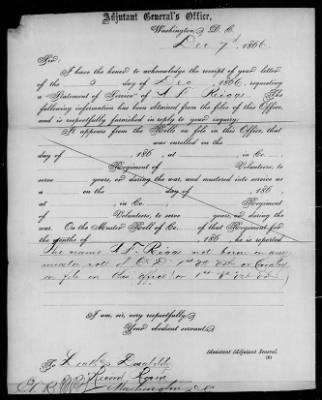 Adjutant General's Office,
Washington, D. C.
Dec 7th, 1866.
Sir:
I have the honor to acknowledge the receipt of your letter
of the 3 day of Dec, 1866, requesting
a Statement of Service of The
following information has been obtained from the files of this Office,
and is respectfully furnished in reply to your inquiry.
It appears from the Rolls on file in this Office, that
was enrolled on the
day of , 186 , at , in Co.
Regiment of Volunteers, to
serve years, or during the war, and mustered into service as
a on the day of , 186 ,
at , in Co. Regiment
of Volunteers, to serve years, or during the
war. On the Muster Roll of Co. of that Regiment for
the months of , 186 , he is reported
The name not borne on any
muster roll of Co. 1st or
on file in this office or 1st
I am, sir, very respectfully,
Your obedient servant,
Assistant Adjutant General.
To
Washington D.C.